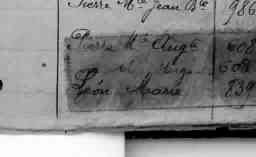 Pierre Mce Jean Bte 986
Pierre Mce Augte 608
608
Léon Marie 839